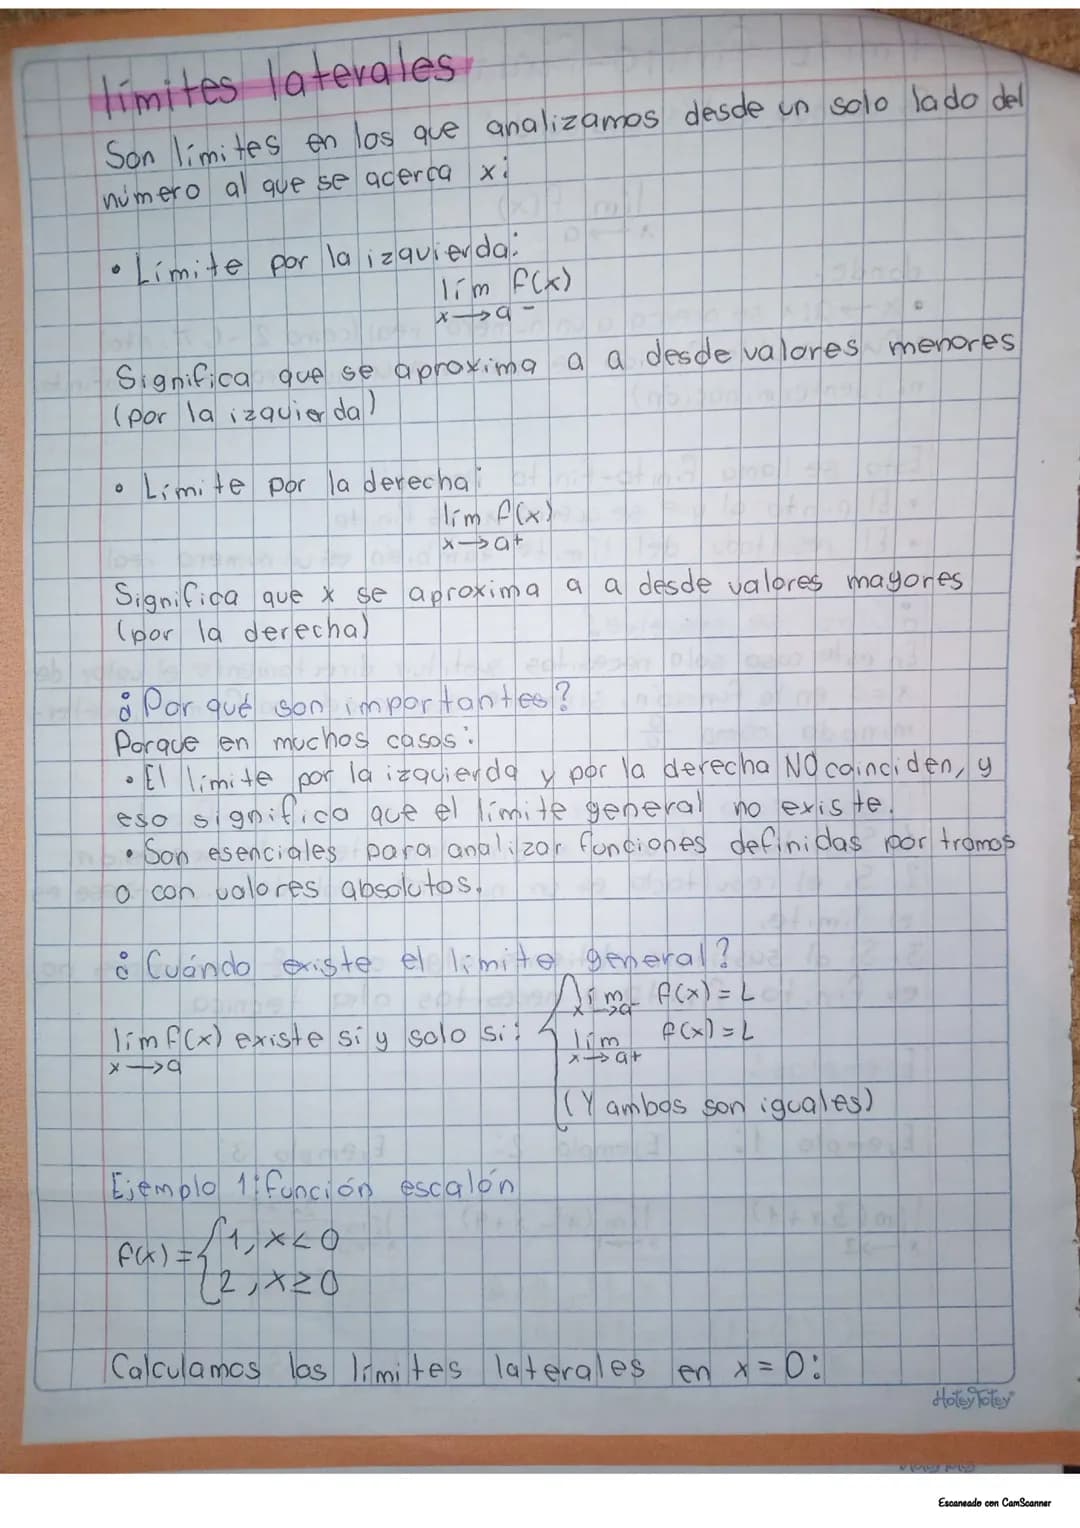 límites laterales
Son límites en los que analizamos desde un solo lado del
número al que se acerca x:
• Límite por la izquierda:
lím f(x)
x→a⁻
Significa que se aproxima a a desde valores menores
(por la izquierda)
• Límite por la derecha:
lím f(x)
x→a+
Significa que x se aproxima a a desde valores mayores
(por la derecha)
¿Por qué son importantes?
Porque en muchos casos:
• El límite por la izquierda y por la derecha NO coinciden, y
eso significa que el límite general no existe.
• Son esenciales para analizar funciones definidas por tramos
o con valores absolutos.
¿Cuándo existe el límite general?
lím f(x) = L
x→a⁻
lím f(x) existe sí y solo si: { lím f(x) = L
x→a x→a+
(Y ambos son iguales)
Ejemplo 1: función escalón
f(x) = { 1, x < 0
2, x ≥ 0
Calculamos los límites laterales en x = 0:
HoteyTotey
Escaneado con CamScanner